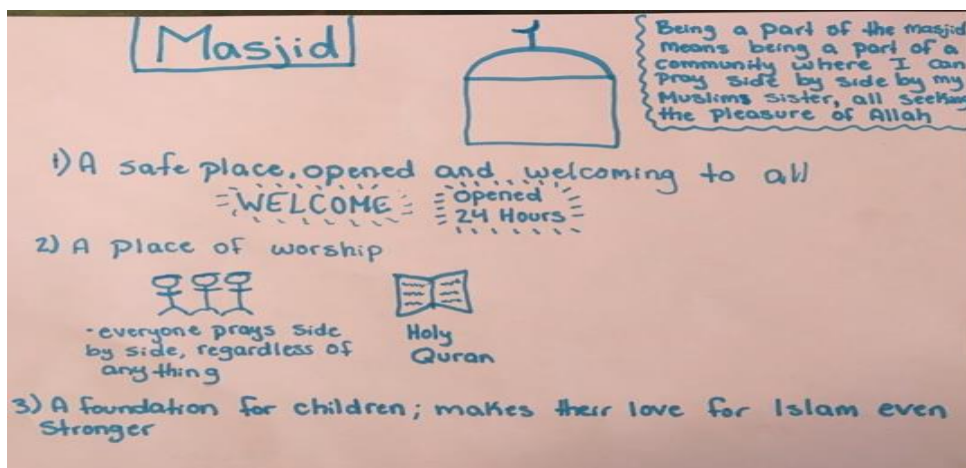 Masjid
Being a part of the masjid
means being a part of a
community where I can
pray side by side by my
Muslims sister, all seeking
the pleasure of Allah
1) A safe place, opened and welcoming to all
WELCOME
Opened
24 Hours
2) A place of worship
- everyone prays side
by side, regardless of
anything
Holy
Quran
3) A foundation for children; makes their love for Islam even
stronger